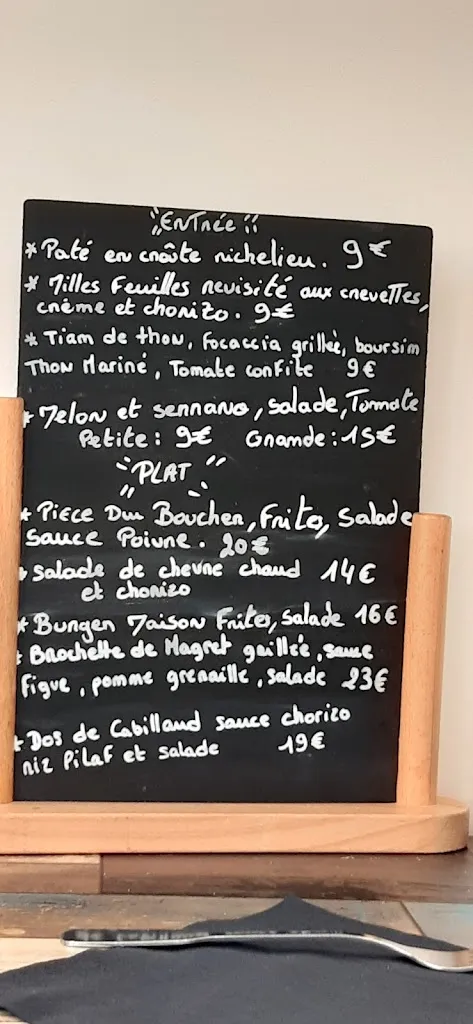 "Entrée"
* Paté en croûte richelieu. 9€
* Milles Feuilles revisité aux crevettes,
crème et chorizo. 9€
* Tiam de thon, Focaccia grillée, boursim
Thon Mariné, Tomate confite 9€
* Melon et serrano, salade, Tomate
Petite : 9€ Grande : 15€
"PLAT"
* Piece Du Boucher, Frites, Salade
Sauce Poivre. 20€
* Salade de chevre chaud 14€
et chorizo
* Burger Maison Frites, Salade 16€
* Brochette de Magret grillée, sauce
figue, pomme grenaille, salade 23€
* Dos de Cabillaud sauce chorizo
riz Pilaf et salade 19€